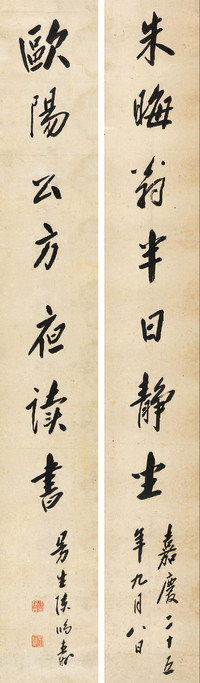 朱晦翁半日静坐
嘉慶二十五
年九月八日
歐陽公方夜读書
曼生陈鸿寿